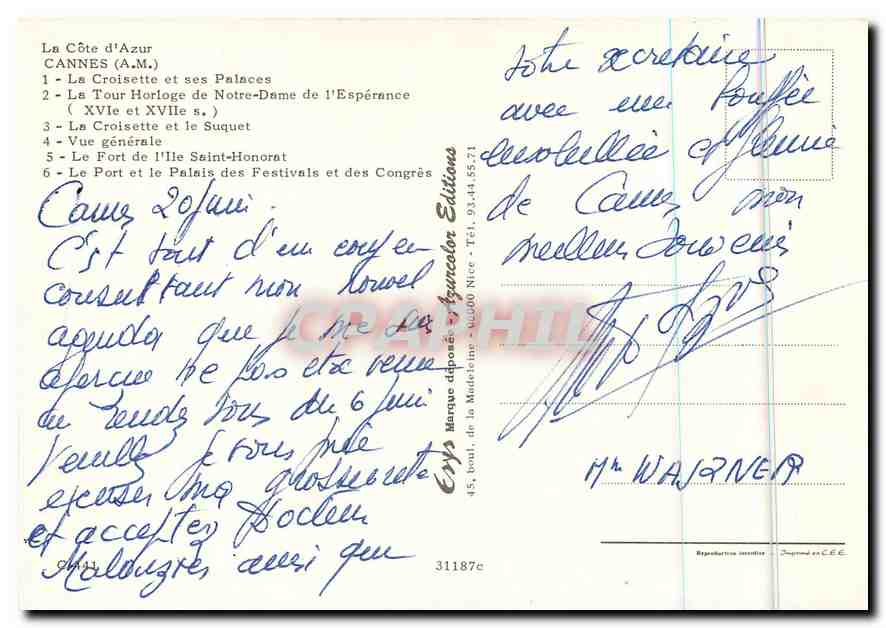 La Côte d'Azur
CANNES (A.M.)
1 - La Croisette et ses Palaces
2 - La Tour Horloge de Notre-Dame de l'Espérance
( XVIe et XVIIe s. )
3 - La Croisette et le Suquet
4 - Vue générale
5 - Le Fort de l'Ile Saint-Honorat
6 - Le Port et le Palais des Festivals et des Congrès
Cannes 20 Juin.
C'est tout d'un coup en
consultant mon nouvel
agenda que je me suis
aperçue ne pas être venue
au rendez vous du 6 Juin
Veuillez je vous prie
excuser ma grossiereté
et accepter Docteur
ainsi que
31187c
Erys Marque déposée - Azurcolor Editions
45, boul. de la Madeleine - 06000 Nice - Tél. 93.44.55.71
CPAPHIL
votre secretaire
avec une bouffée
ensoleillée et fleurie
de Cannes mon
meilleur souvenir
Mme WAJZNER
Reproduction interdite - Imprimé en C.E.E.